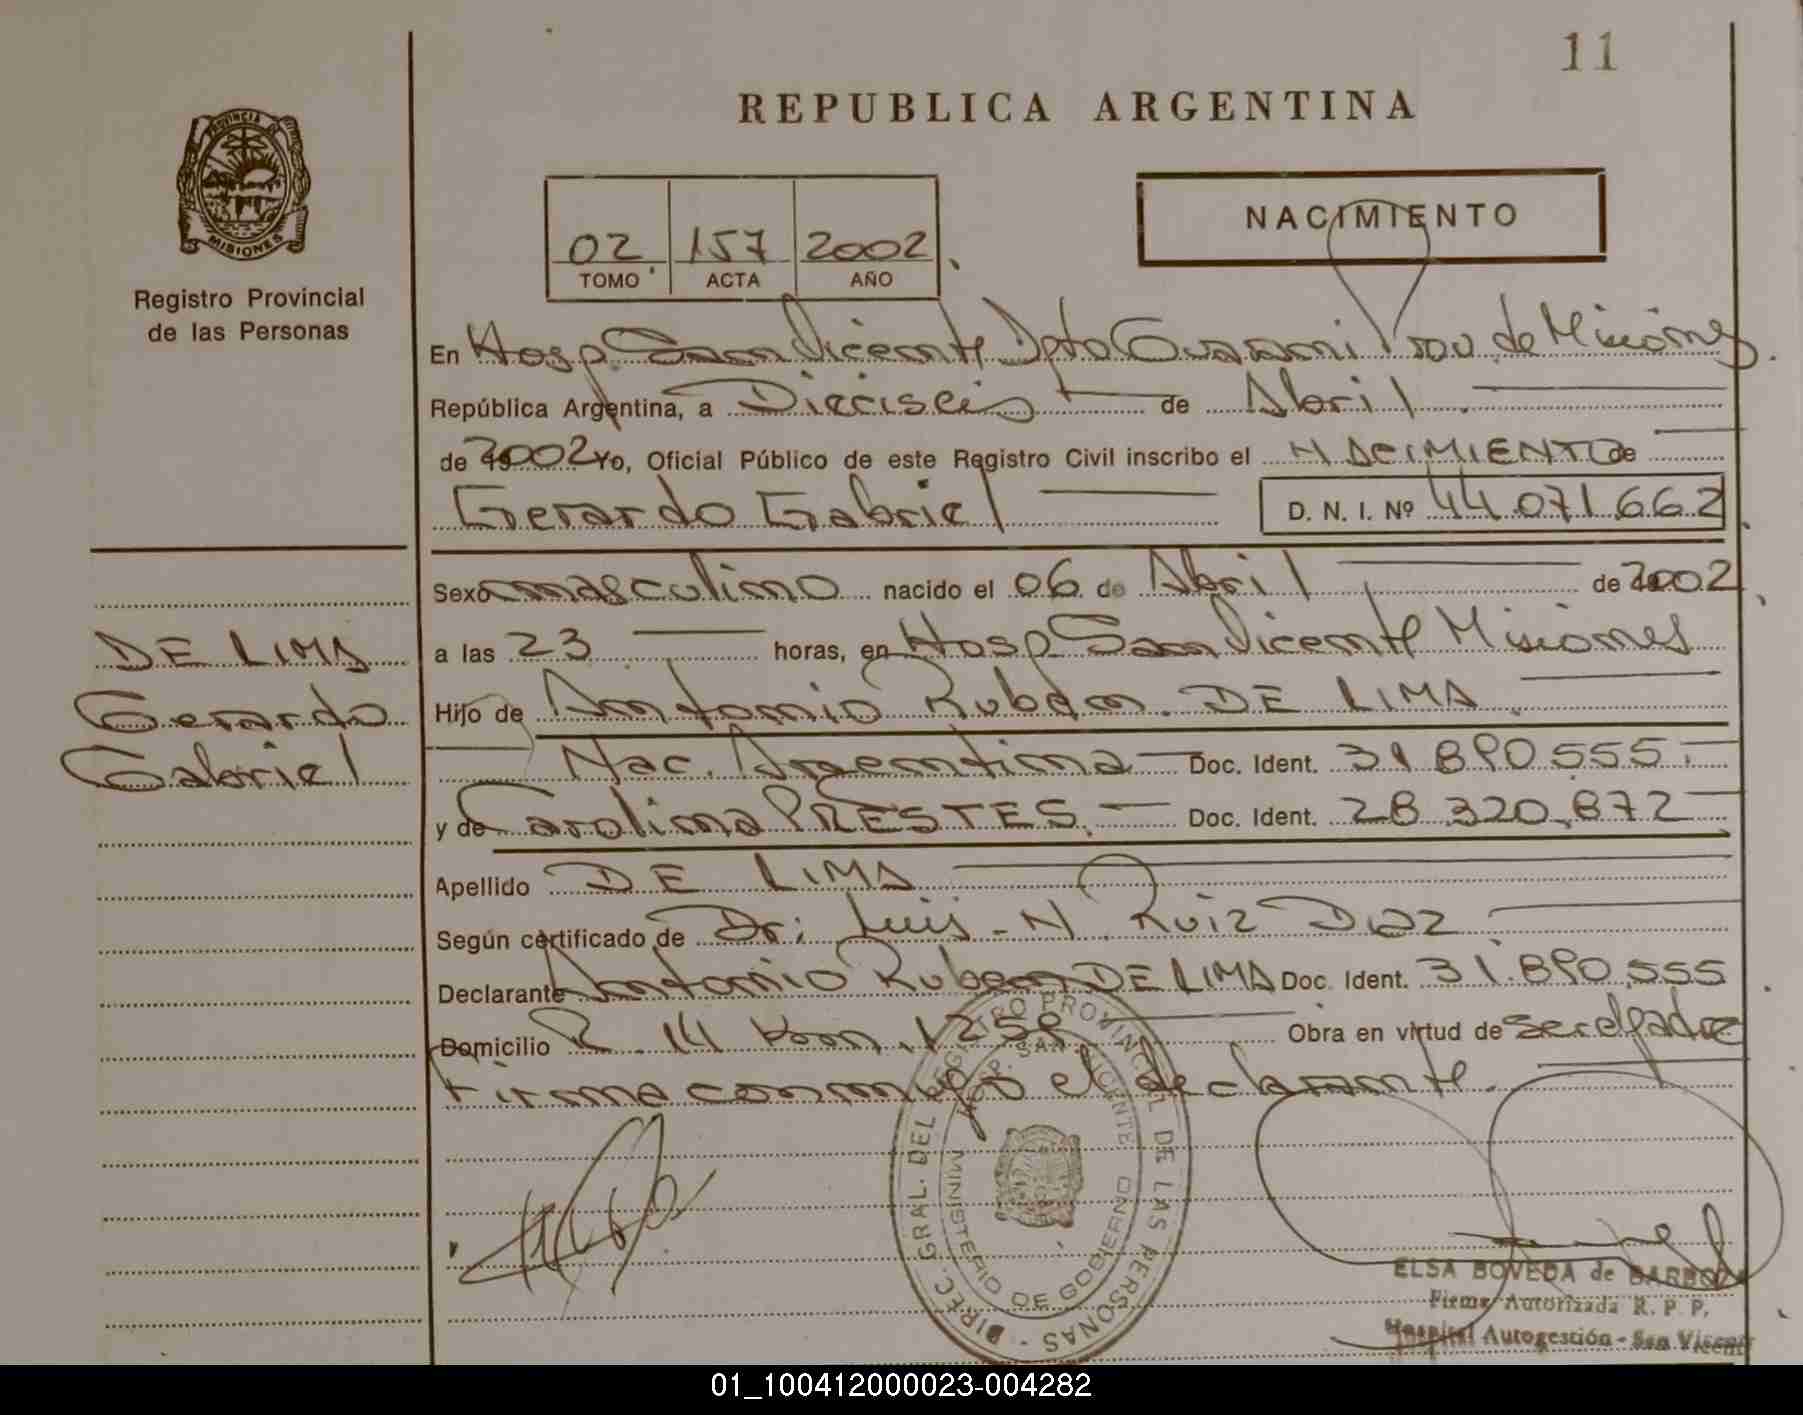 11
REPUBLICA ARGENTINA
PROVINCIA DE
MISIONES
Registro Provincial
de las Personas
02 157 2002
TOMO ACTA AÑO
NACIMIENTO
En Hosp. San Vicente Dpto Guarani Prov. de Misiones
República Argentina, a Dieciseis de Abril
de 2002 Yo, Oficial Público de este Registro Civil inscribo el NACIMIENTO de
Gerardo Gabriel D. N. I. Nº 44.071.662
Sexo masculino nacido el 06 de Abril de 2002
a las 23 horas, en Hosp San Vicente Misiones
Hijo de Antonio Ruben DE LIMA
Nac. Argentina Doc. Ident. 31 890.555
y de Carolina PRESTES. Doc. Ident. 28.320.872
Apellido DE LIMA
Según certificado de Dr: Luis - N. Ruiz Diaz
Declarante Antonio Ruben DE LIMA Doc. Ident. 31.890.555
Domicilio R. 14 Km. 1258 Obra en virtud de ser el padre
Firma conmigo el declarante.
DE LIMA
Gerardo
Gabriel
DIREC. GRAL. DEL REGISTRO PROVINCIAL DE LAS PERSONAS -
HOSP. SAN VICENTE
MINISTERIO DE GOBIERNO
ELSA BOVEDA de BARBOZA
Firma Autorizada R. P. P.
Hospital Autogestión - San Vicente
01_100412000023-004282